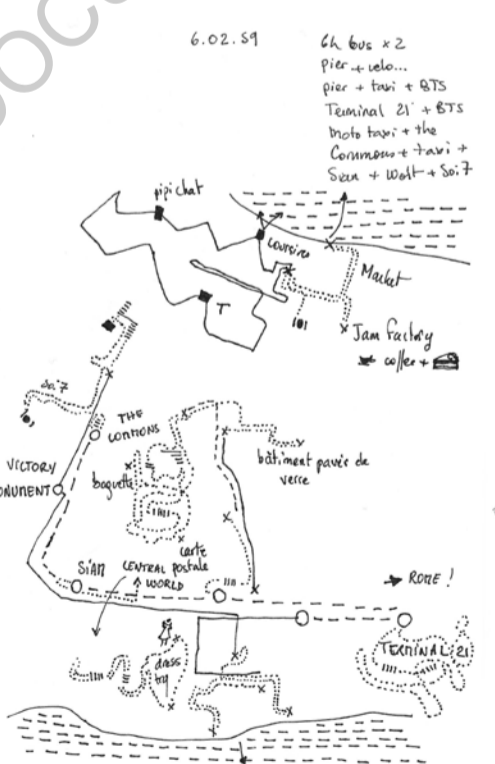 6.02.59
6h bus x 2
pier + velo...
pier + taxi + BTS
Terminal 21 + BTS
moto taxi + the
Commons + taxi +
Siam + Walt + Soi 7
pipi chat
courses
Market
T
Jam factory
coffee +
Soi 7
THE
COMMONS
VICTORY
MONUMENT
baguette
bâtiment pavés de
verre
carte
postale
SIAM
CENTRAL
WORLD
ROME !
TERMINAL 21
dress
try